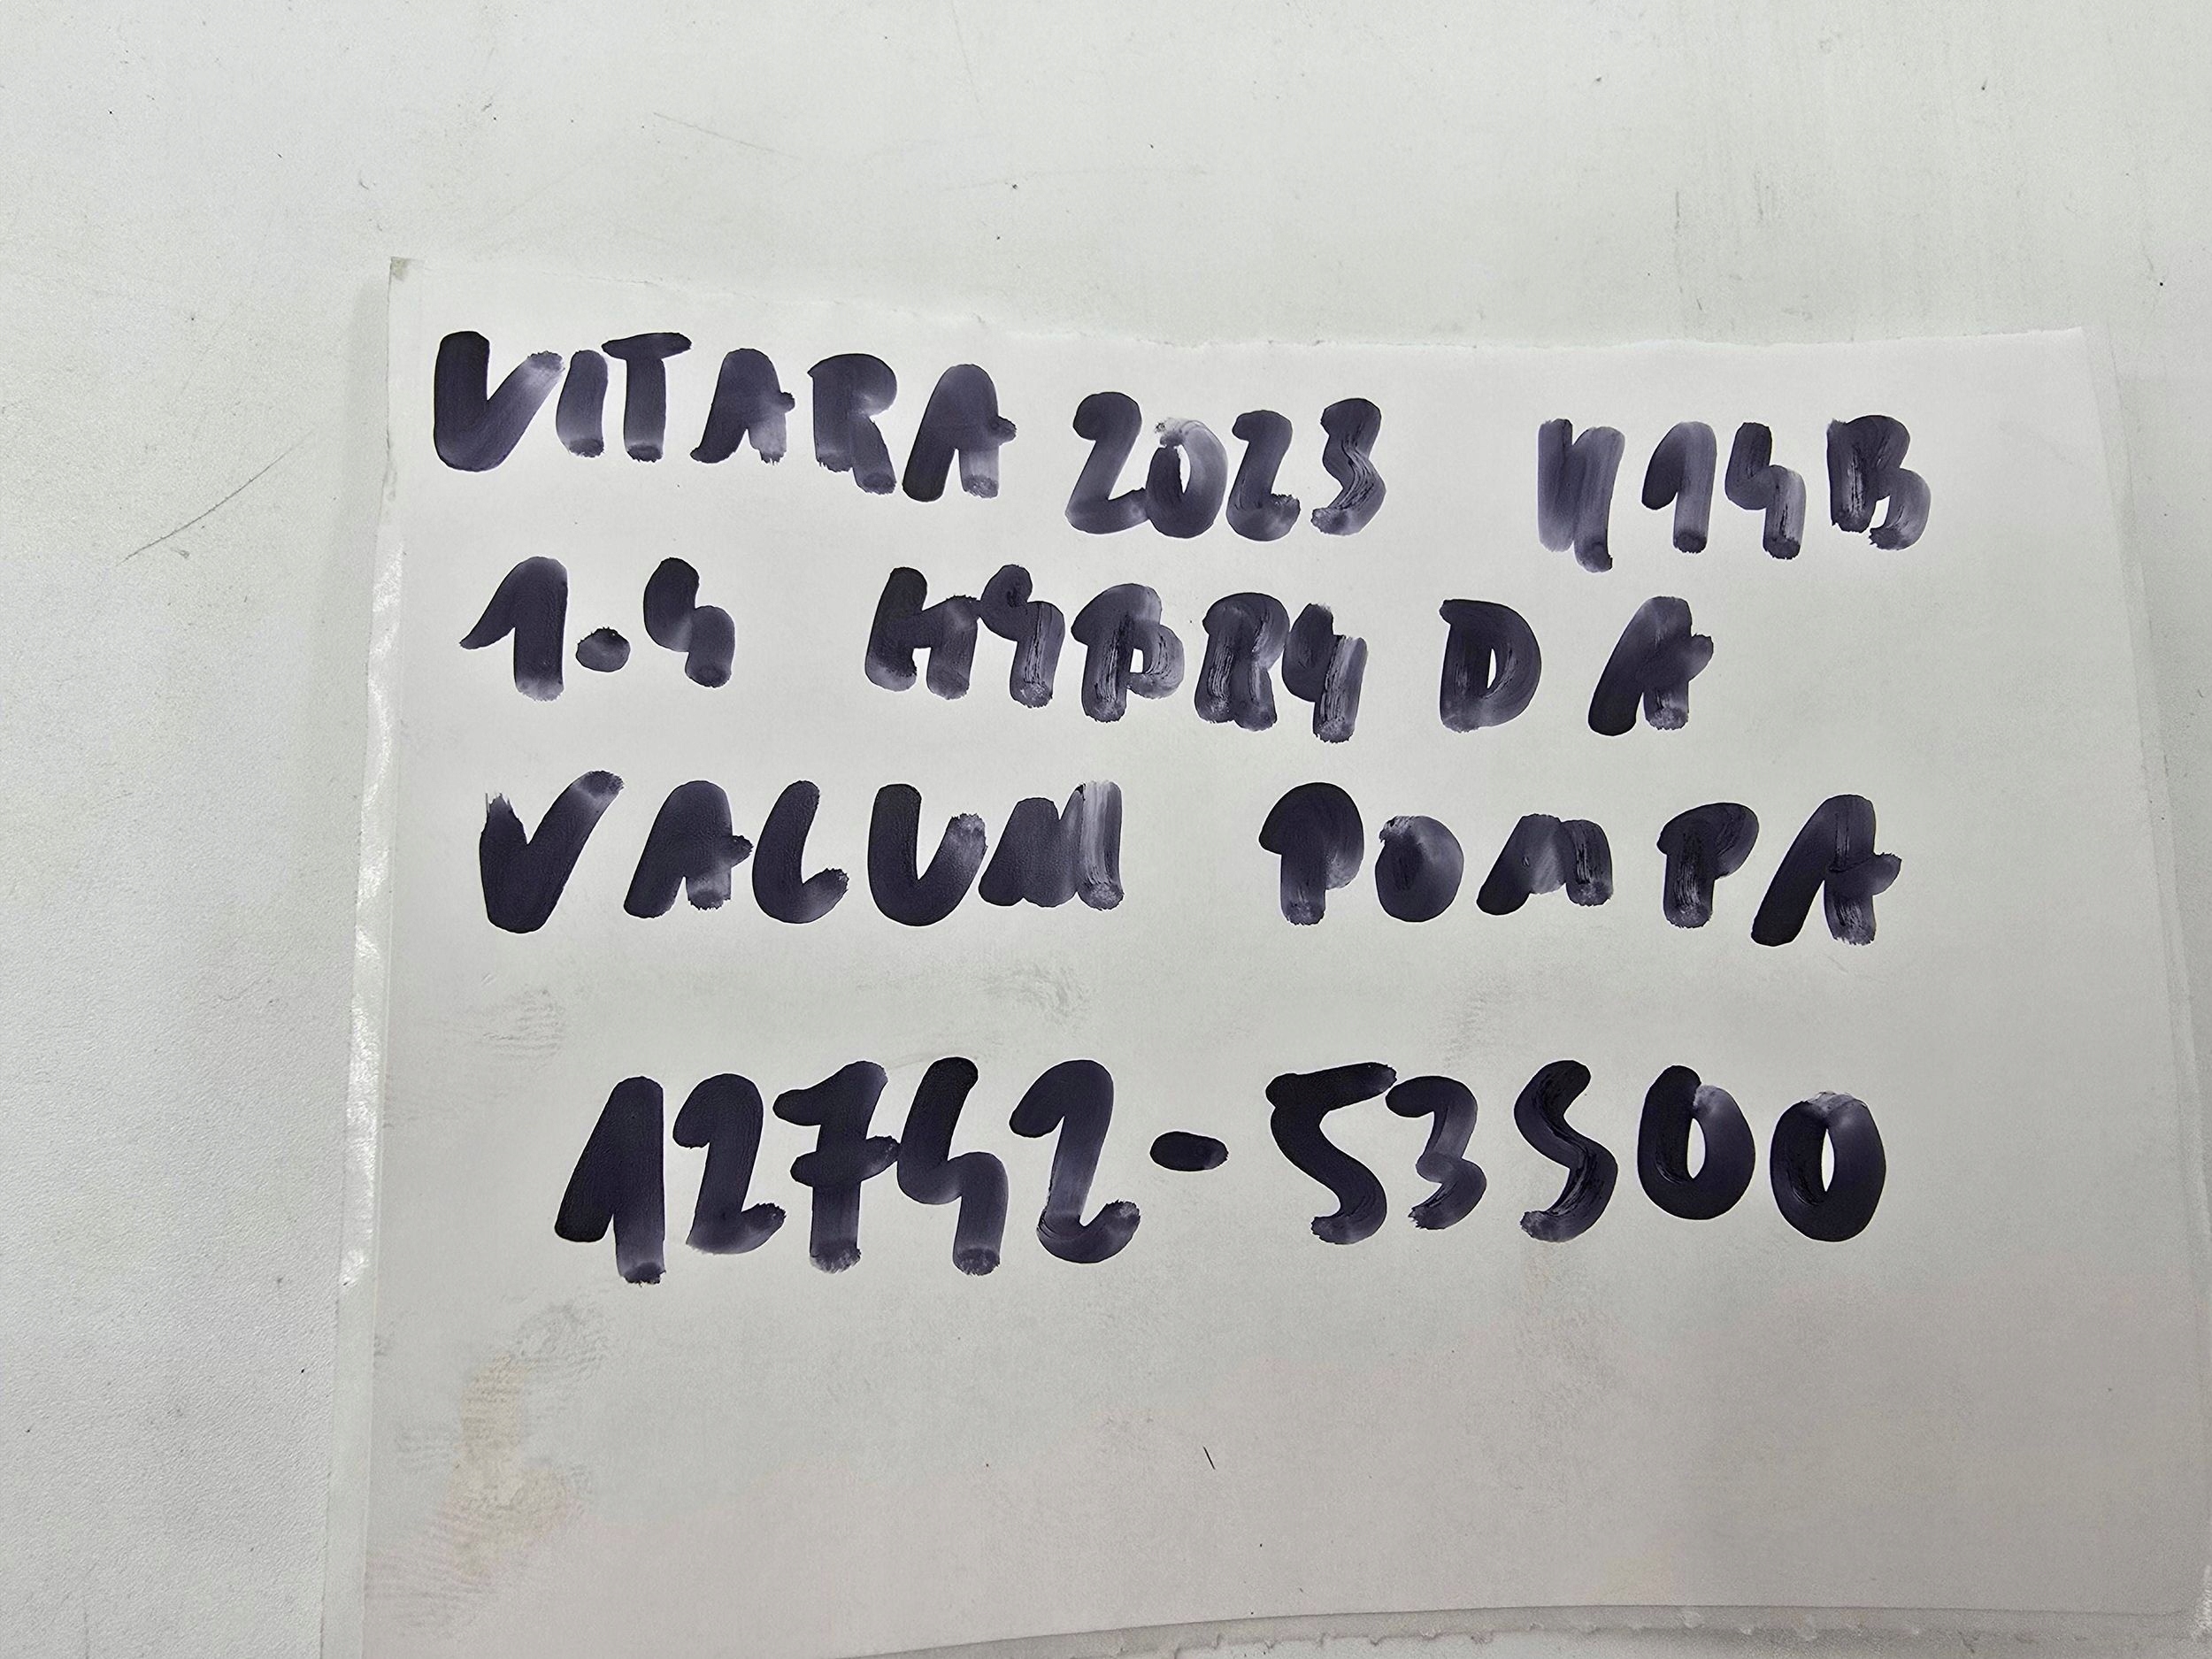 VITARA 2023 K14B
1.4 HYBRYDA
VACUM POMPA
12742-53S00